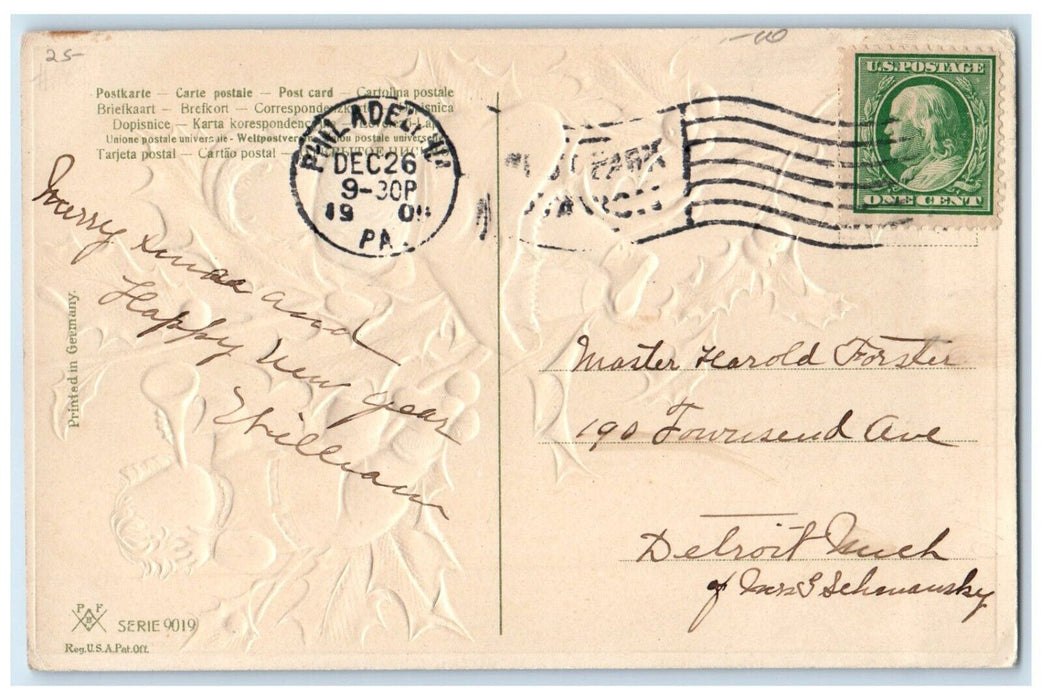 25-
Postkarte — Carte postale — Post card — Cartolina postale
Briefkaart — Brefkort —
Dopisnice — Karta
Unione postale universale — Weltpostverein postale universelle
Tarjeta postal — Cartão postal —
PHILADELPHIA
DEC 26
9-30P
19 09
PA.
STATION
U.S. POSTAGE
ONE CENT
Merry Xmas and
Happy New year
William
Printed in Germany.
Master Harold Forster
190 Townsend Ave
Detroit Mich
Mrs G Schmansky
P F
B
SERIE 9019
Reg. U.S.A. Pat. Off.